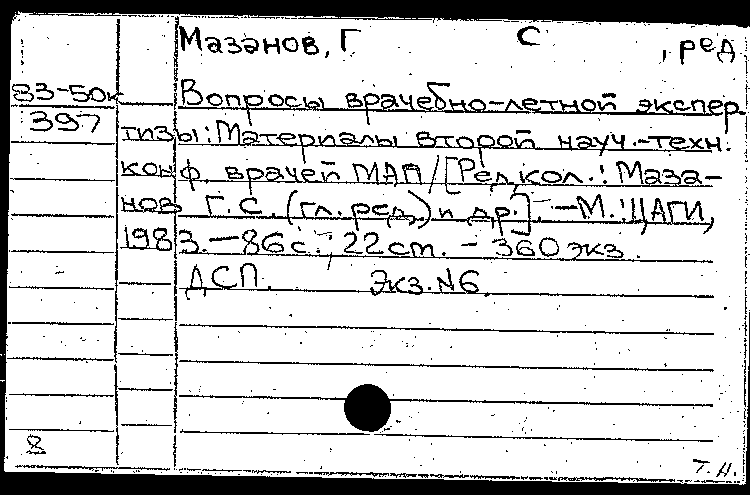 Мазанов, Г С , ред
83-50к Вопросы врачебно-летной экспер
397 тизы: Материалы второй науч.-техн.
конф. врачей МАП/[Ред.кол.: Маза-
нов Г.С. (гл. ред.) и др.]. - М.: ЦАГИ,
1983. - 86 с.; 22 ст. - 360 экз.
ДСП. Экз. N6.
8
Т. Н.